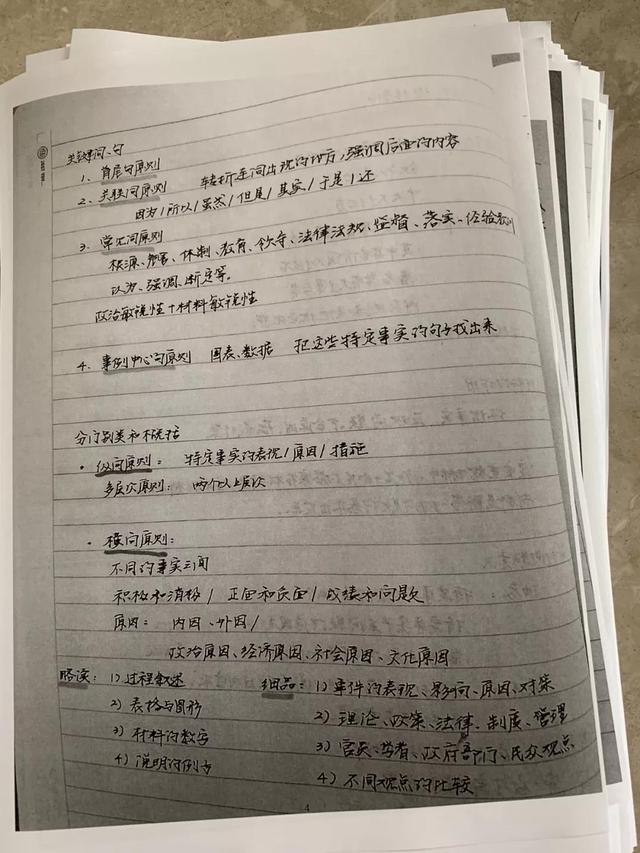 关键词、句
1. 首尾句原则
2. 关联词原则 转折连词出现的地方,强调后面的内容
因为/所以/虽然/但是/其实/于是/还
3. 常见词原则
根源、解客、体制、教育、领导、法律法规、监督、落实、经验教训
认为、强调、断定等。
政治敏锐性+材料敏锐性
4. 事例中心句原则 图表、数据 把这些特定事实的句子找出来
分门别类和不概括
· 纵向原则: 特定事实的表现/原因/措施
多层次原则: 两个以上层次
· 横向原则:
不同的事实之间
积极和消极/ 正面和负面/ 成绩和问题
原因: 内因、外因/
政治原因、经济原因、社会原因、文化原因
略读: 1) 过程叙述 细品: 1) 事件的表现、影响、原因、对策
2) 表格与图形 2) 理论、政策、法律、制度、管理
3) 材料的数字 3) 官员、学者、政府部门、民众观点
4) 说明的例子 4) 不同观点的比较
4